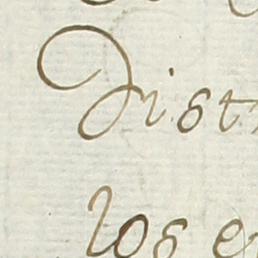 Dist
los e